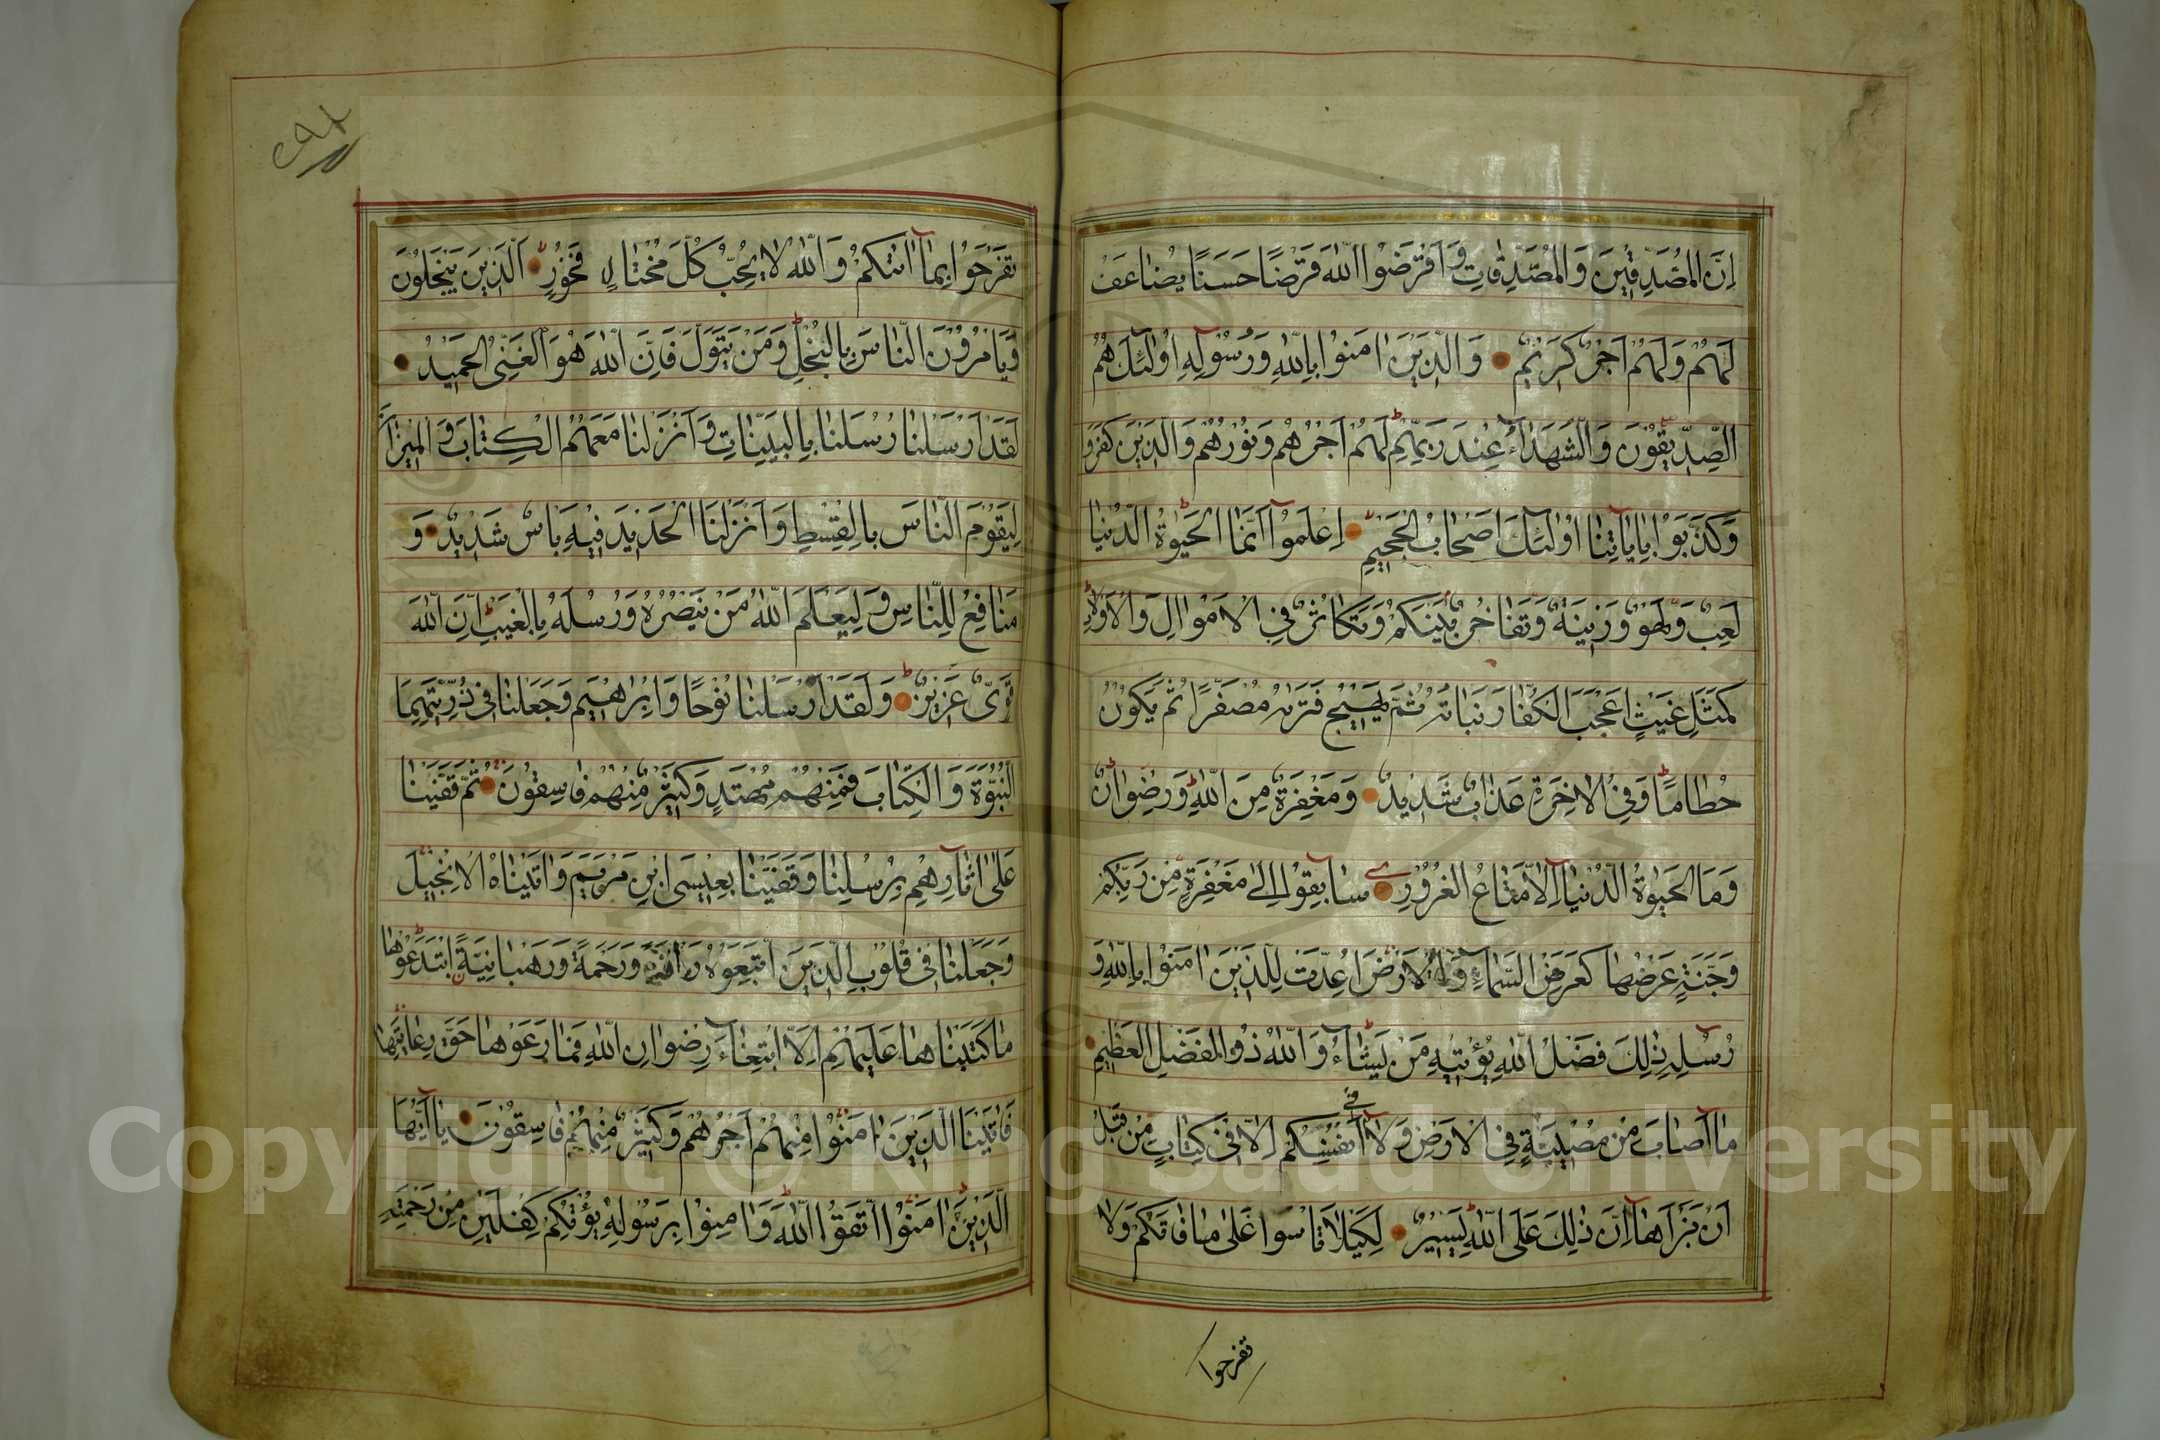 اِنَّ المُصَّدِّقٖينَ وَالمُصَّدِّقَاتِ وَاَقْرَضُوا اللّٰهَ قَرْضًا حَسَنًا يُضَاعَفُ
لَهُمْ وَلَهُمْ اَجْرٌ كَرٖيمٌ وَالَّذٖينَ اٰمَنُوا بِاللّٰهِ وَرُسُلِهِ اُولٰئِكَ هُمُ
الصِّدّٖيقُونَ وَالشُّهَدَآءُ عِنْدَ رَبِّهِمْ لَهُمْ اَجْرُهُمْ وَنُورُهُمْ وَالَّذٖينَ كَفَرُو
وَكَذَّبُوا بِاٰيَاتِنَا اُولٰئِكَ اَصْحَابُ الْجَحٖيمِ اِعْلَمُوآ اَنَّمَا الْحَيٰوةُ الدُّنْيَا
لَعِبٌ وَلَهْوٌ وَزٖينَةٌ وَتَفَاخُرٌ بَيْنَكُمْ وَتَكَاثُرٌ فِي الْاَمْوَالِ وَالْاَوْلَادِ
كَمَثَلِ غَيْثٍ اَعْجَبَ الْكُفَّارَ نَبَاتُهُ ثُمَّ يَهٖيجُ فَتَرٰيهُ مُصْفَرًّا ثُمَّ يَكُونُ
حُطَامًا وَفِي الْاٰخِرَةِ عَذَابٌ شَدٖيدٌ وَمَغْفِرَةٌ مِنَ اللّٰهِ وَرِضْوَانٌ
وَمَا الْحَيٰوةُ الدُّنْيَا اِلَّا مَتَاعُ الْغُرُورِ سَابِقُوآ اِلٰى مَغْفِرَةٍ مِنْ رَبِّكُمْ
وَجَنَّةٍ عَرْضُهَا كَعَرْضِ السَّمَاءِ وَالْاَرْضِ اُعِدَّتْ لِلَّذٖينَ اٰمَنُوا بِاللّٰهِ وَ
رُسُلِهِ ذٰلِكَ فَضْلُ اللّٰهِ يُؤْتٖيهِ مَنْ يَشَآءُ وَاللّٰهُ ذُو الْفَضْلِ الْعَظٖيمِ
مَآ اَصَابَ مِنْ مُصٖيبَةٍ فِي الْاَرْضِ وَلَا فٖى اَنْفُسِكُمْ اِلَّا فٖى كِتَابٍ مِنْ قَبْلِ
اَنْ نَبْرَاَهَا اِنَّ ذٰلِكَ عَلَى اللّٰهِ يَسٖيرٌ لِكَيْلَا تَاْسَوْا عَلٰى مَا فَاتَكُمْ وَلَا
تفرحوا
٢٩٤
تَفْرَحُوا بِمَآ اٰتٰيكُمْ وَاللّٰهُ لَا يُحِبُّ كُلَّ مُخْتَالٍ فَخُورٍ اَلَّذٖينَ يَبْخَلُونَ
وَيَاْمُرُونَ النَّاسَ بِالْبُخْلِ وَمَنْ يَتَوَلَّ فَاِنَّ اللّٰهَ هُوَ الْغَنِيُّ الْحَمٖيدُ
لَقَدْ اَرْسَلْنَا رُسُلَنَا بِالْبَيِّنَاتِ وَاَنْزَلْنَا مَعَهُمُ الْكِتَابَ وَالْمٖيزَانَ
لِيَقُومَ النَّاسُ بِالْقِسْطِ وَاَنْزَلْنَا الْحَدٖيدَ فٖيهِ بَاْسٌ شَدٖيدٌ وَ
مَنَافِعُ لِلنَّاسِ وَلِيَعْلَمَ اللّٰهُ مَنْ يَنْصُرُهُ وَرُسُلَهُ بِالْغَيْبِ اِنَّ اللّٰهَ
قَوِيٌّ عَزٖيزٌ وَلَقَدْ اَرْسَلْنَا نُوحًا وَاِبْرٰهٖيمَ وَجَعَلْنَا فٖى ذُرِّيَّتِهِمَا
النُّبُوَّةَ وَالْكِتَابَ فَمِنْهُمْ مُهْتَدٍ وَكَثٖيرٌ مِنْهُمْ فَاسِقُونَ ثُمَّ قَفَّيْنَا
عَلٰى اٰثَارِهِمْ بِرُسُلِنَا وَقَفَّيْنَا بِعٖيسَى ابْنِ مَرْيَمَ وَاٰتَيْنَاهُ الْاِنْجٖيلَ
وَجَعَلْنَا فٖى قُلُوبِ الَّذٖينَ اتَّبَعُوهُ رَاْفَةً وَرَحْمَةً وَرَهْبَانِيَّةً ابْتَدَعُوهَا
مَا كَتَبْنَاهَا عَلَيْهِمْ اِلَّا ابْتِغَآءَ رِضْوَانِ اللّٰهِ فَمَا رَعَوْهَا حَقَّ رِعَايَتِهَا
فَاٰتَيْنَا الَّذٖينَ اٰمَنُوا مِنْهُمْ اَجْرَهُمْ وَكَثٖيرٌ مِنْهُمْ فَاسِقُونَ يَآ اَيُّهَا
الَّذٖينَ اٰمَنُوا اتَّقُوا اللّٰهَ وَاٰمِنُوا بِرَسُولِهِ يُؤْتِكُمْ كِفْلَيْنِ مِنْ رَحْمَتِهِ
Copyright © King Saud University